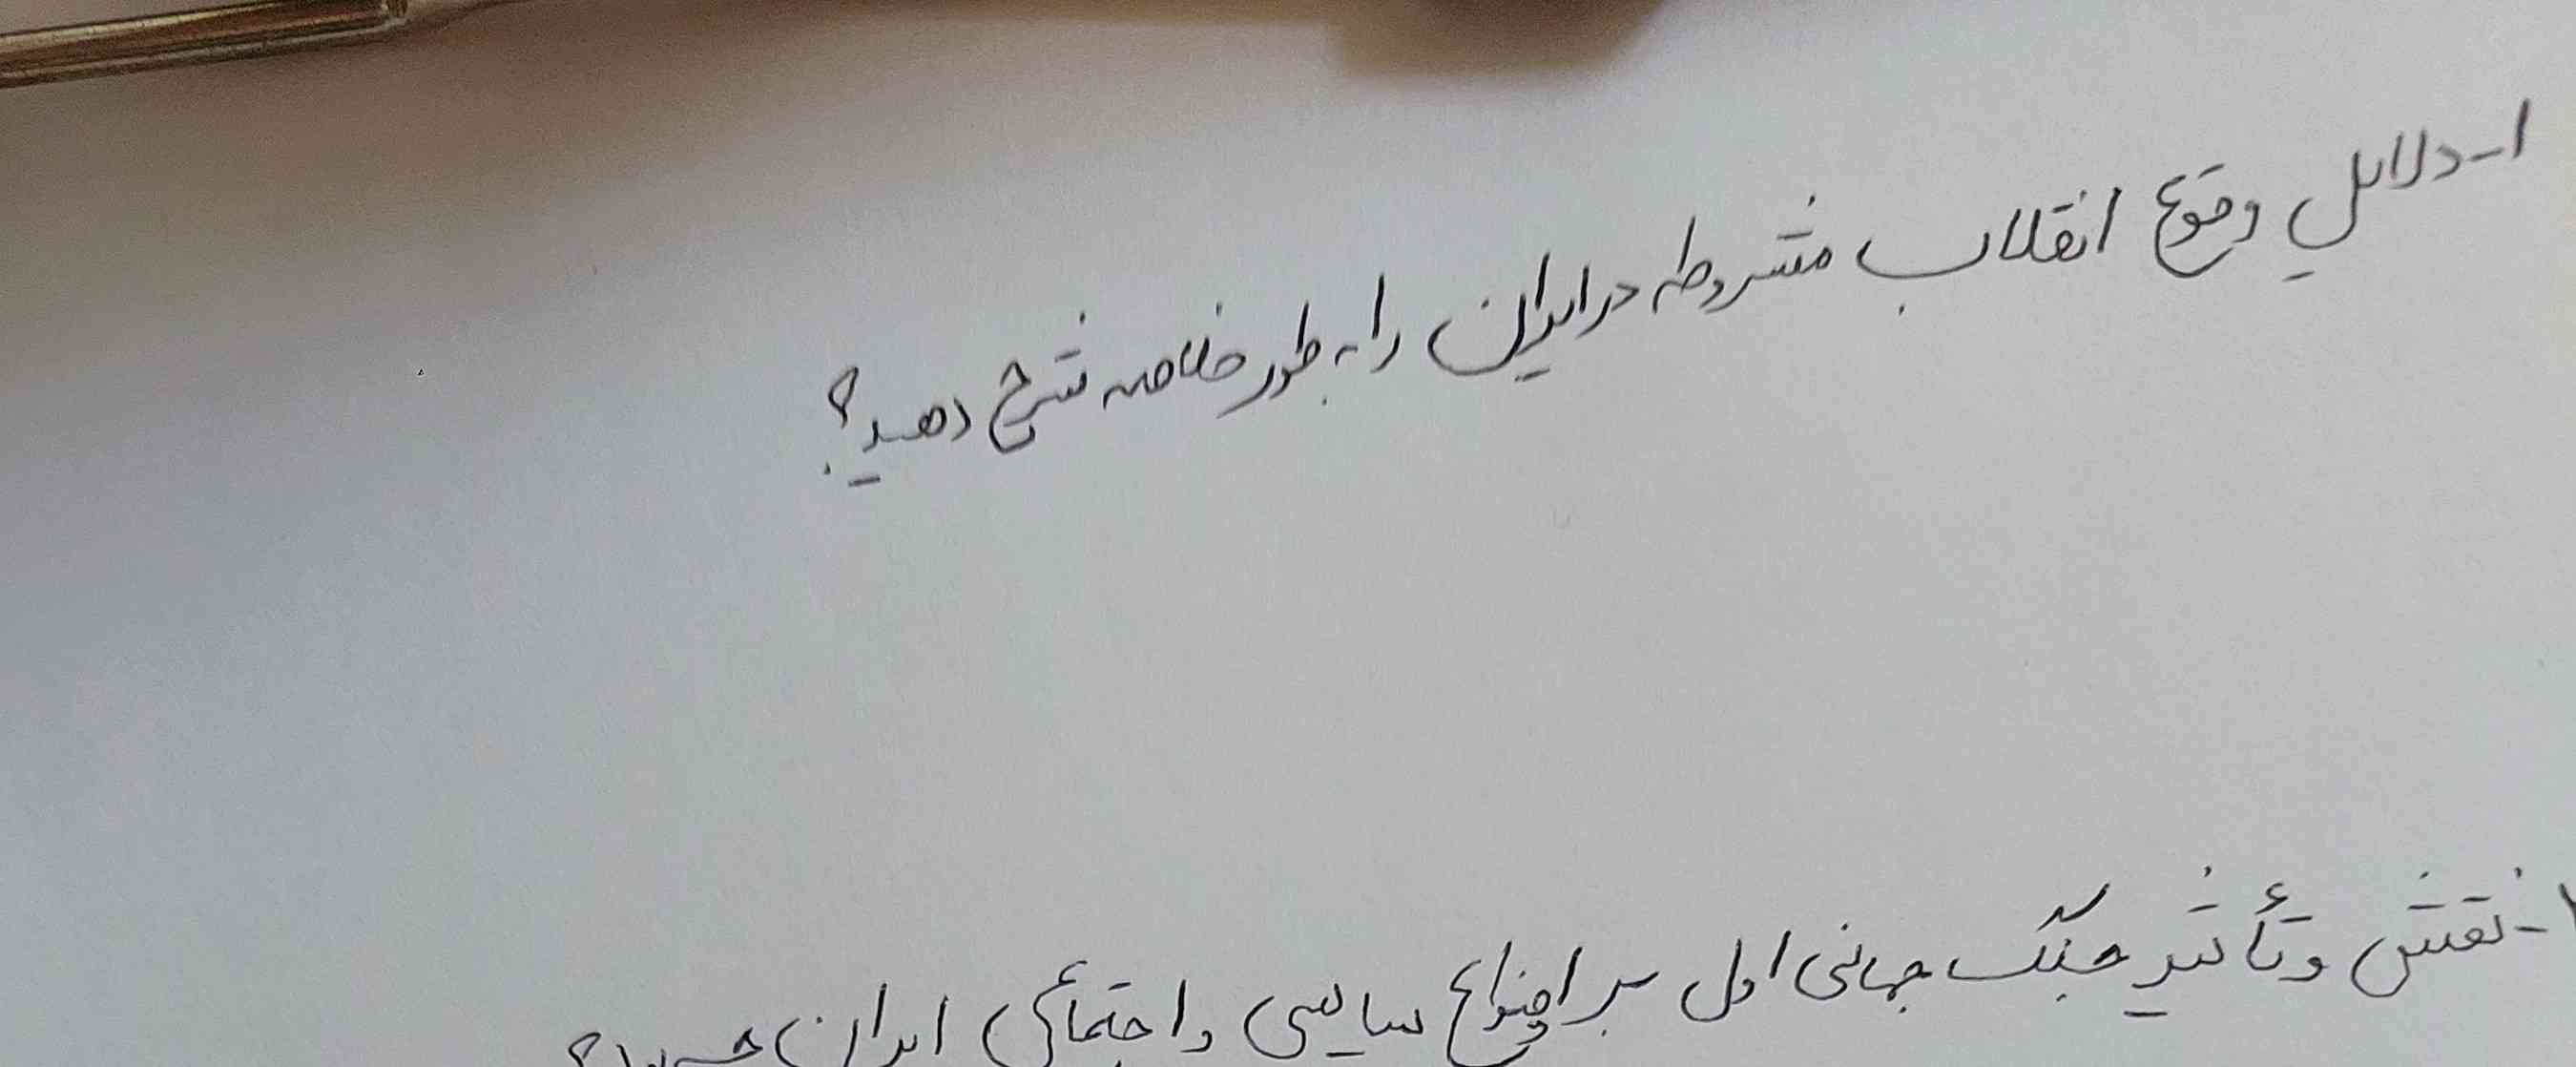 ۱- دلایل وقوع انقلاب مشروطه در ایران را به طور خلاصه شرح دهید؟
نقش و تأثیر جنگ جهانی اول بر اوضاع سیاسی و اجتماعی ایران